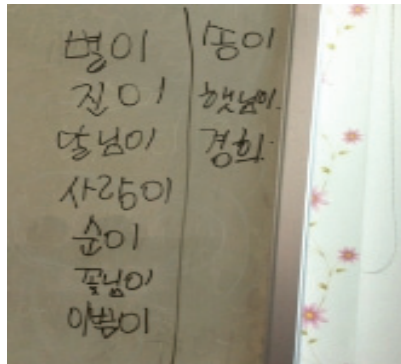 별이
진이
달님이
사랑이
순이
꽃님이
이쁨이
똥이
햇님이.
경희.